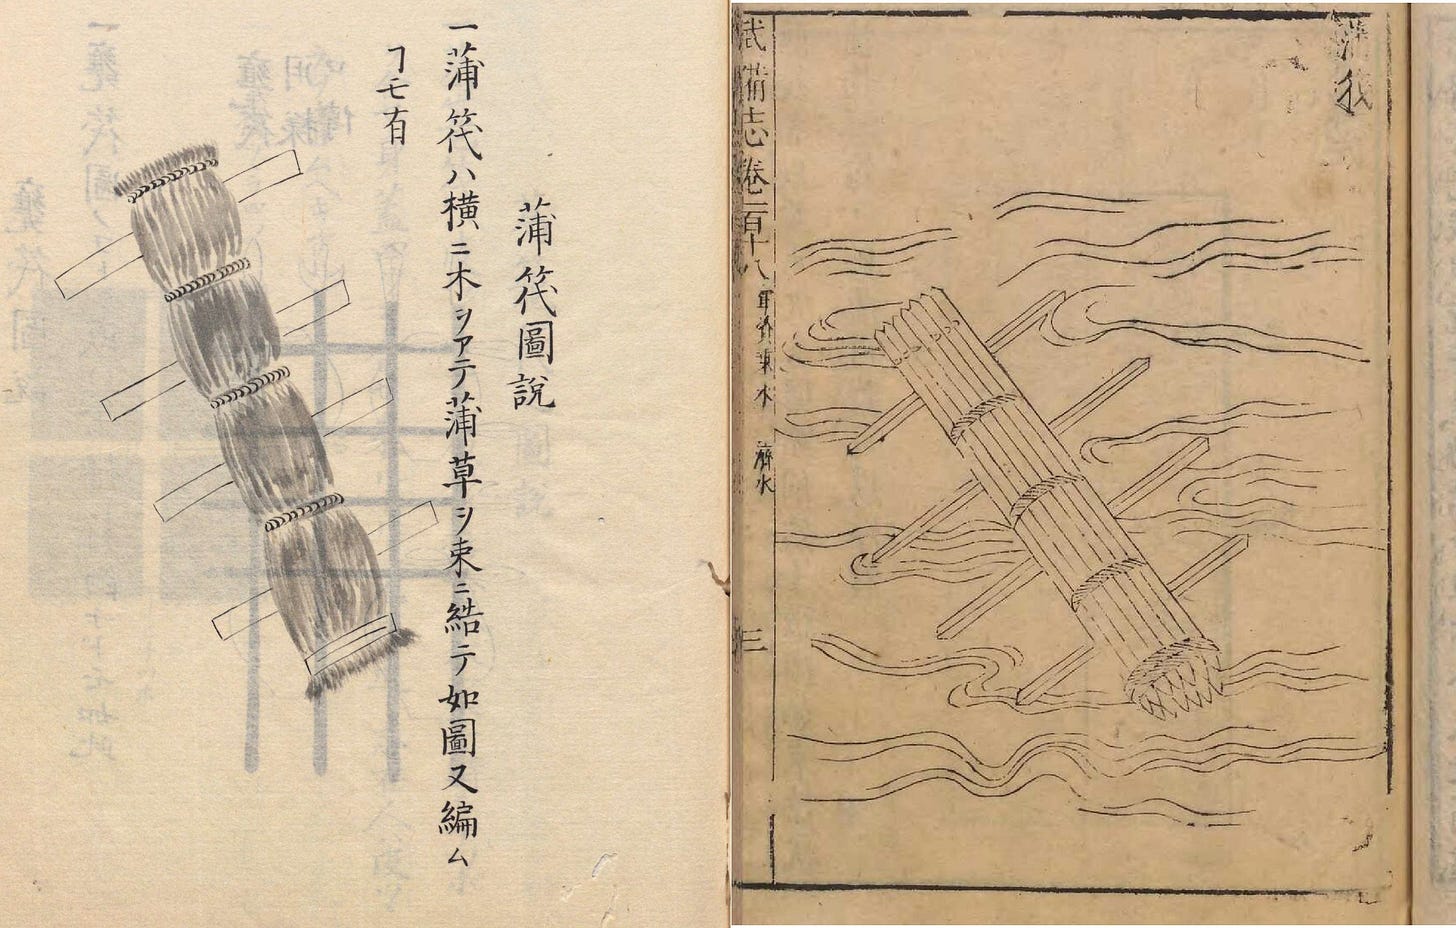 蒲筏圖說
一蒲筏ハ横ニ木ヲアテ蒲草ヲ束ニ結テ如圖又編ム
ヿモ有
蒲筏
武備志卷一百十八 軍資乘水 濟水 三